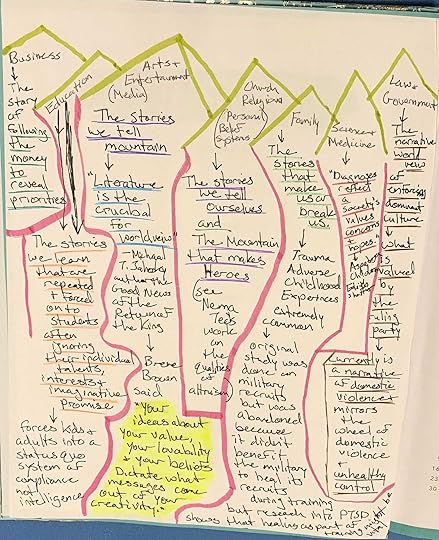 Business
↓
The
story
of
following
the
money
to
reveal
priorities
Education
The stories
we learn
that are
repeated
& forced
on to
students
often
ignoring
their individual
talents,
interests &
imaginative
promise
↓
forces kids &
adults into a
status quo
system of
compliance
not
intelligence
Arts &
Entertainment
(Media)
↓
The stories
we tell
mountain
↓
"Literature
is the
crucibal
for
worldview"
Michael
T. Jahosky
author the
Good News
of the
Return of
the King
↓
Brene
Brown
said
"Your
ideas about
your value,
your lovability
& your beliefs
Dictate what
messages come
out of your
creativity."
Church
Religious
(Personal
Belief
Systems)
↓
The stories
we tell
ourselves
and
The Mountain
that makes
Heroes
(see
Nema
Tec's
work
on
the
qualities
of
altruism)
Family
↓
The
stories
that
make
us or
break
us.
↓
Trauma
Adverse
Childhood
Experiences
extremely
common!
↓
original
study was
done on
military
recruits
but was
abandoned
because
it didn't
benefit
the military
to heal its
recruits
during training
but research into PTSD
shows that healing as part of
training
might be
Science &
Medicine
↓
"Diagnoses
reflect
a
society's
values
concerns
& hopes."
Law &
Government
↓
The
narrative
world
view
of
enforcing
dominant
culture
↓
what
is
valued
by
the
ruling
party
↓
Currently is
a narrative
of domestic
violence &
mirrors
the wheel of
domestic
violence
↓
unhealthy
control